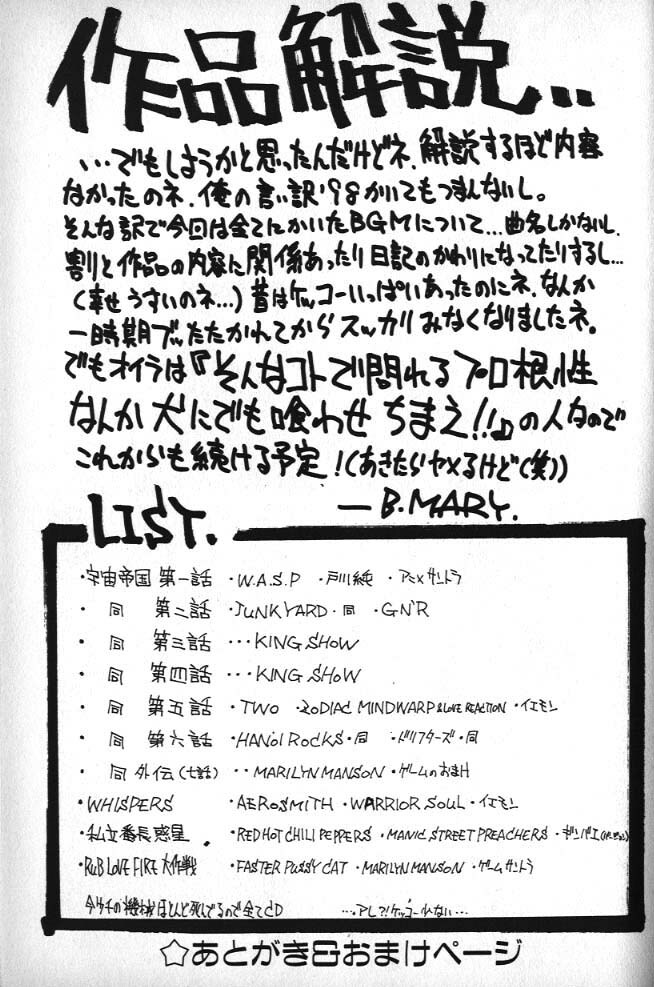 作品解説..
…でもしようかと思ったんだけどネ、解説するほど内容
なかったのネ、俺の言い訳'98かいてもつまんないし。
そんな訳で今回は全てにかいたBGMについて…曲名しかないし、
割と作品の内容に関係あったり日記のかわりになってたりするし…
(幸せうすいのネ…)昔はケッコーいっぱいあったのにネ、なんか
一時期ブッたたかれてからスッカリみなくなりましたネ。
でもオイラは『そんなコトで問れるプロ根性
なんか犬にでも喰わせちまえ!!』の人なので
これからも続ける予定!(あきたらヤメるけど(笑))
—B.MARY.
LIST.
・宇宙帝国 第一話 ・W.A.S.P ・戸川純 ・アニメサントラ
・ 同 第二話 ・JUNKYARD ・同 ・GN'R
・ 同 第三話 ・・・KING SHOW
・ 同 第四話 ・・・KING SHOW
・ 同 第五話 ・TWO ・ZODIAC MINDWARP & LOVE REACTION ・イエモン
・ 同 第六話 ・HANOI ROCKS ・同 ・ドリフターズ ・同
・ 同 外伝(七話) ・・MARILYN MANSON ・ゲームのおまけ
・WHISPERS ・AEROSMITH ・WARRIOR SOUL ・イエモン
・私立番長惑星. ・RED HOT CHILI PEPPERS ・MANIC STREET PREACHERS ・ギンバエ
・RUB LOVE FIRE 大作戦 ・FASTER PUSSY CAT ・MARILYN MANSON ・ゲームサントラ
今ウチの機械ほとんど死んでるので全てCD …アレ?!ケッコー少ない…
☆あとがき&おまけページ